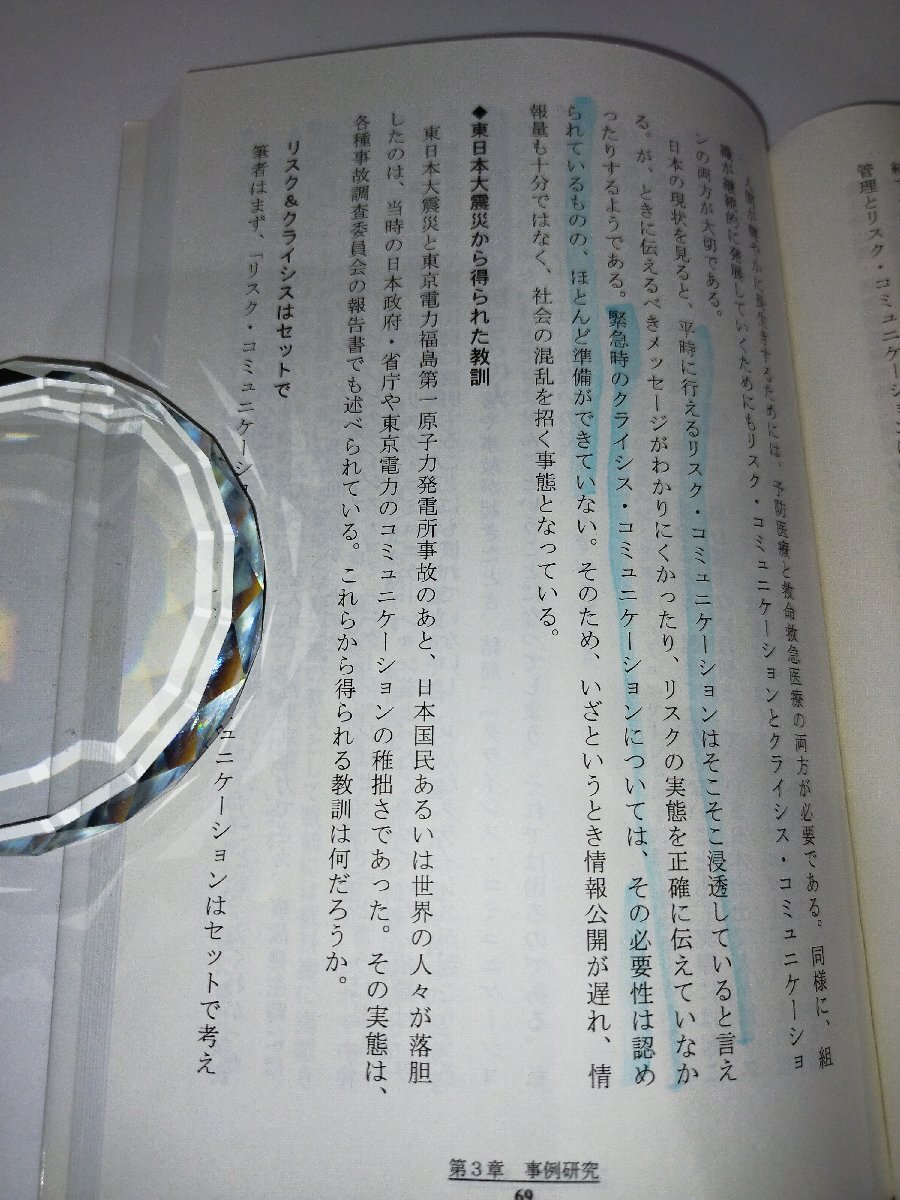 管理とリスク・コミュニケーション
人間が健やかに長生きするためには、予防医療と救命救急医療の両方が必要である。同様に、組
織が継続的に発展していくためにもリスク・コミュニケーションとクライシス・コミュニケーショ
ンの両方が大切である。
日本の現状を見ると、平時に行えるリスク・コミュニケーションはそこそこ浸透していると言え
る。が、ときに伝えるべきメッセージがわかりにくかったり、リスクの実態を正確に伝えていなか
ったりするようである。緊急時のクライシス・コミュニケーションについては、その必要性は認め
られているものの、ほとんど準備ができていない。そのため、いざというとき情報公開が遅れ、情
報量も十分ではなく、社会の混乱を招く事態となっている。
◆東日本大震災から得られた教訓
東日本大震災と東京電力福島第一原子力発電所事故のあと、日本国民あるいは世界の人々が落胆
したのは、当時の日本政府・省庁や東京電力のコミュニケーションの稚拙さであった。その実態は、
各種事故調査委員会の報告書でも述べられている。これらから得られる教訓は何だろうか。
リスク&クライシスはセットで
筆者はまず、「リスク・コミュニケーシ ュニケーションはセットで考え
第3章 事例研究
69